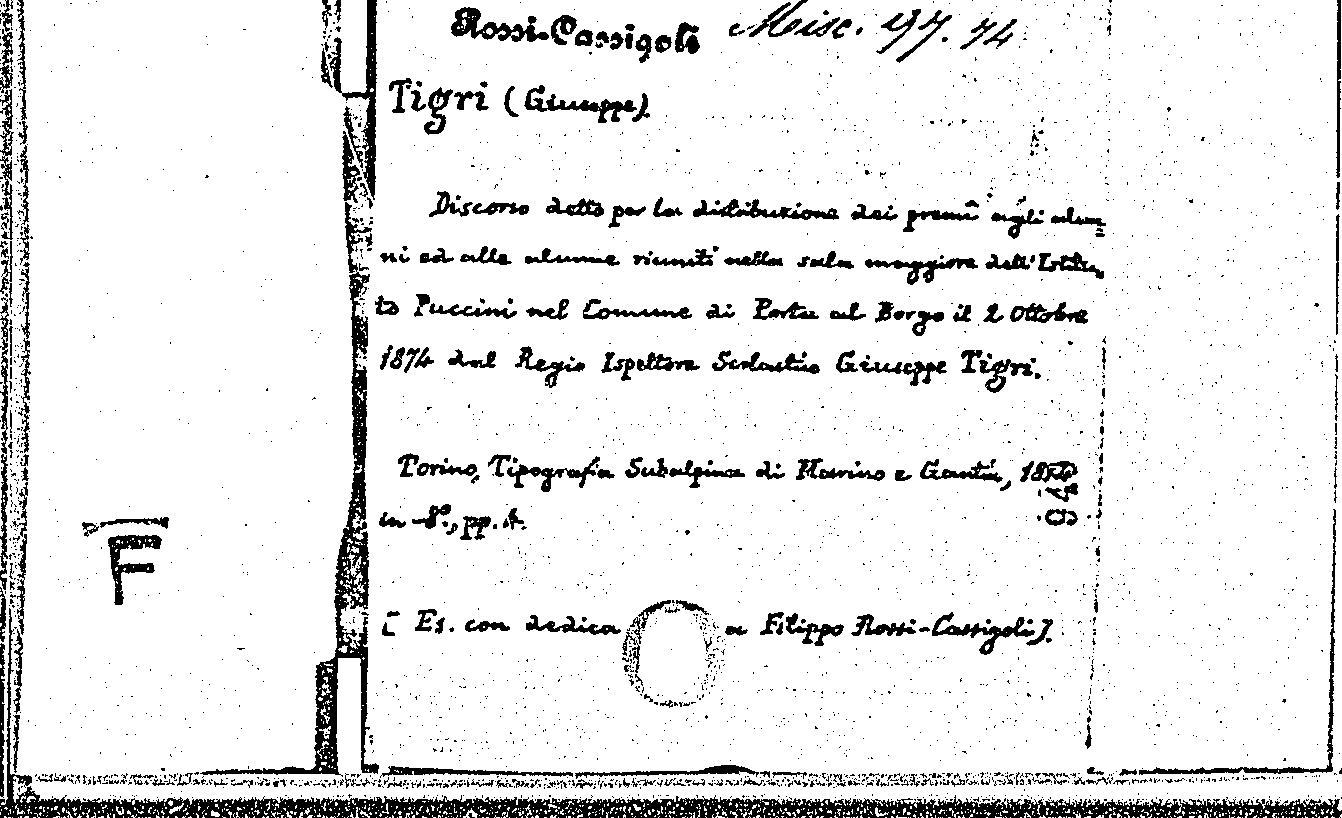 Rossi-Cassigoli Misc. 197. 74
Tigri (Giuseppe)
Discorso detto per la distribuzione dei premî agli alun=
ni ed alle alunne riuniti nella sala maggiore dell'Istitu=
to Puccini nel Comune di Porta al Borgo il 2 Ottobre
1874 dal Regio Ispettore Scolastico Giuseppe Tigri.
Torino, Tipografia Subalpina di Marino e Gantin,
in-8°, pp.
[Es. con dedica a Filippo Rossi-Cassigoli].
F